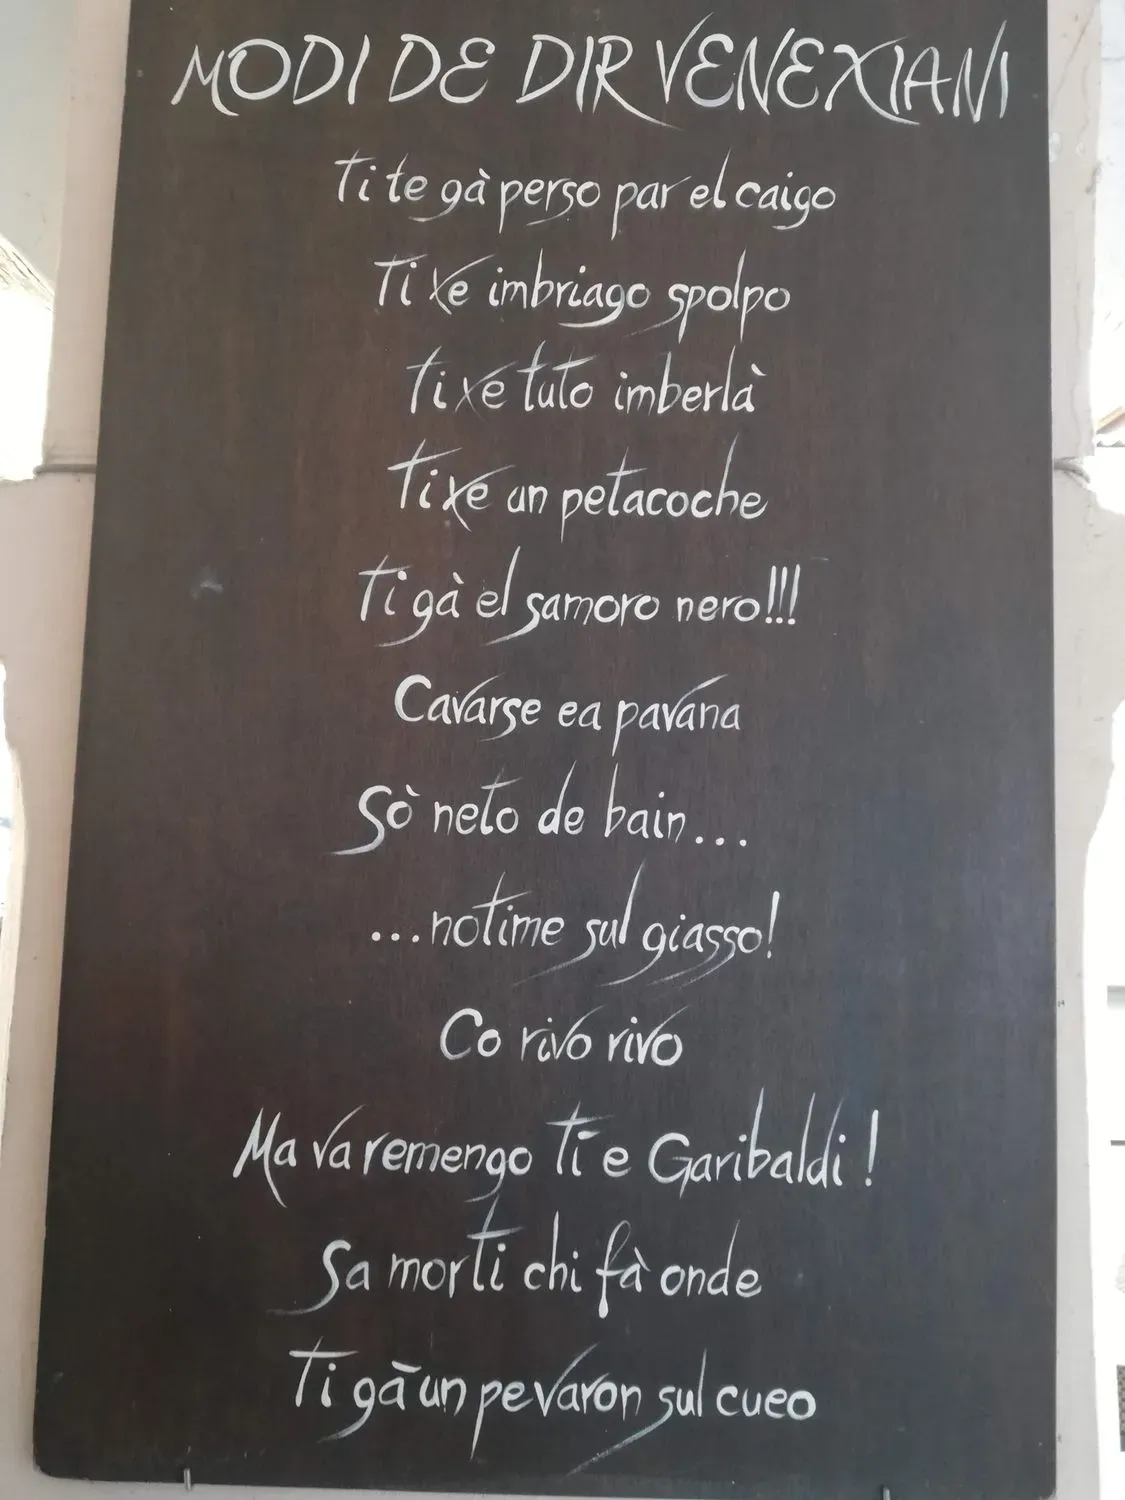 MODI DE DIR VENEXIANI
Ti te gà perso par el caigo
Ti xe imbriago spolpo
Ti xe tuto imberlà
Ti xe un petacoche
Ti gà el samoro nero!!!
Cavarse ea pavana
Sò neto de bain...
...notime sul giasso!
Co rivo rivo
Ma va remengo ti e Garibaldi!
Sa morti chi fà onde
Ti gà un pevaron sul cueo